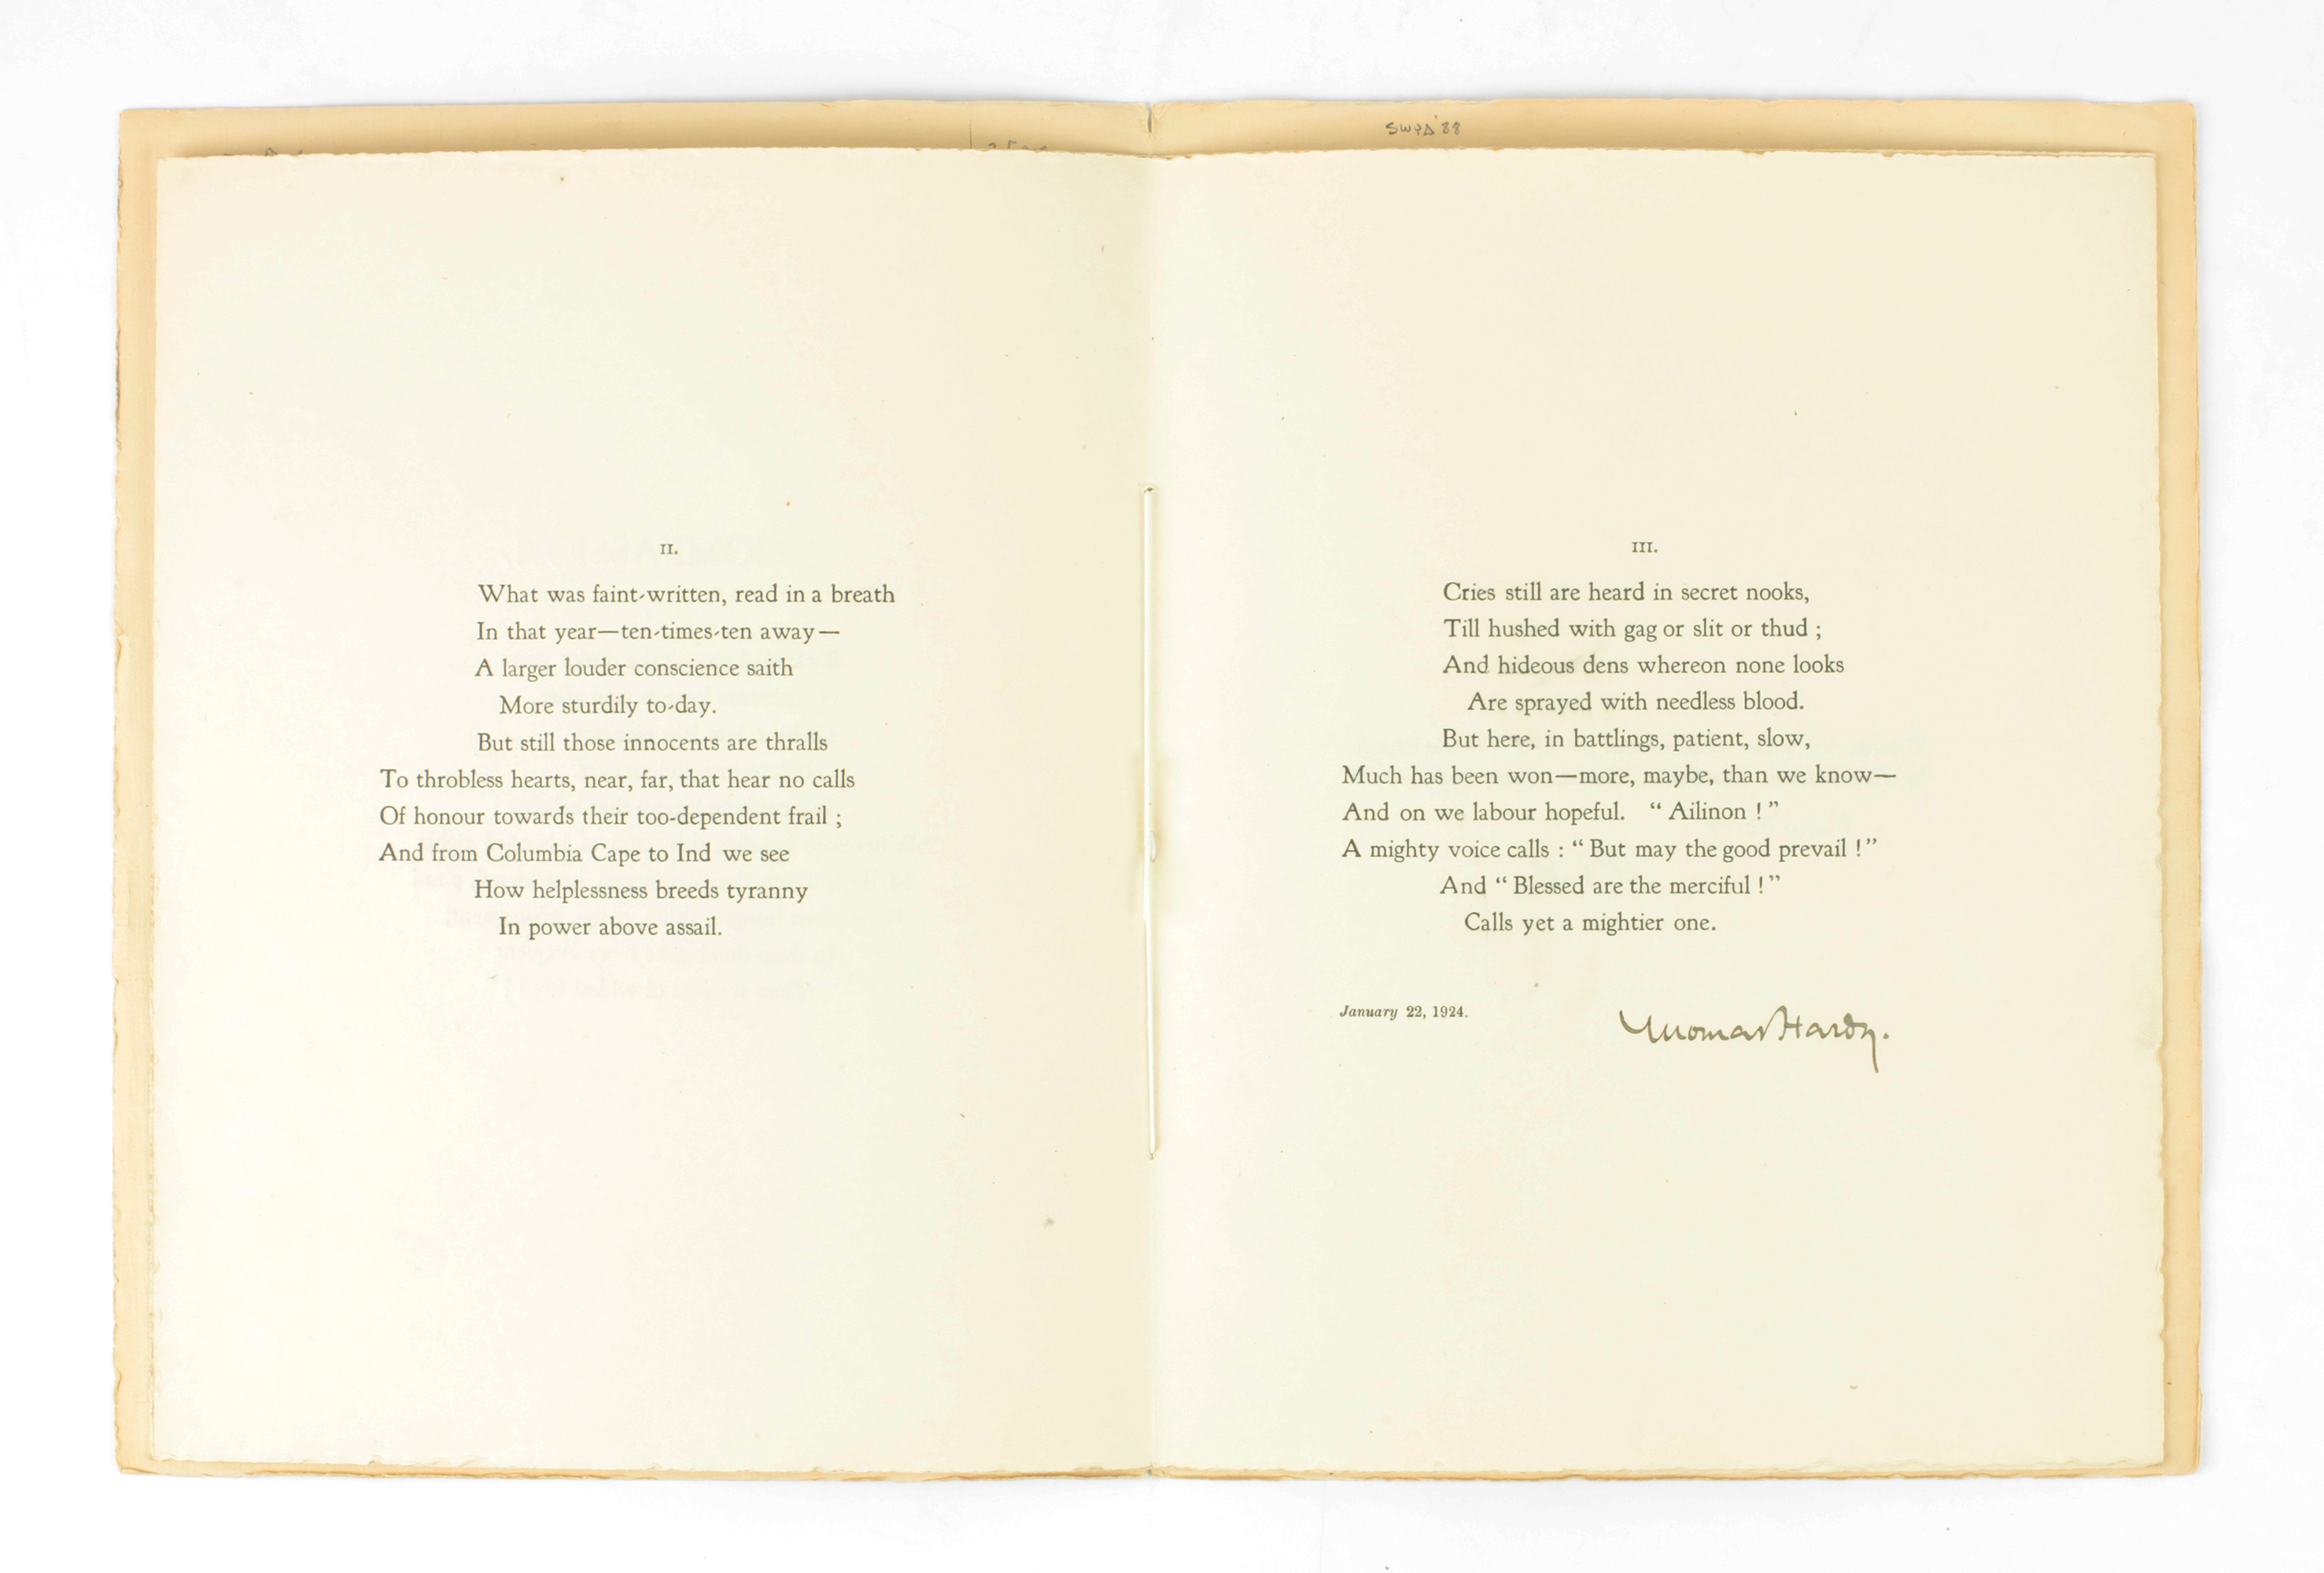 SWYD'88
II.
What was faint-written, read in a breath
In that year—ten-times-ten away—
A larger louder conscience saith
More sturdily to-day.
But still those innocents are thralls
To throbless hearts, near, far, that hear no calls
Of honour towards their too-dependent frail ;
And from Columbia Cape to Ind we see
How helplessness breeds tyranny
In power above assail.
III.
Cries still are heard in secret nooks,
Till hushed with gag or slit or thud ;
And hideous dens whereon none looks
Are sprayed with needless blood.
But here, in battlings, patient, slow,
Much has been won—more, maybe, than we know—
And on we labour hopeful. “ Ailinon ! ”
A mighty voice calls : “ But may the good prevail ! ”
And “ Blessed are the merciful ! ”
Calls yet a mightier one.
January 22, 1924.
Thomas Hardy.